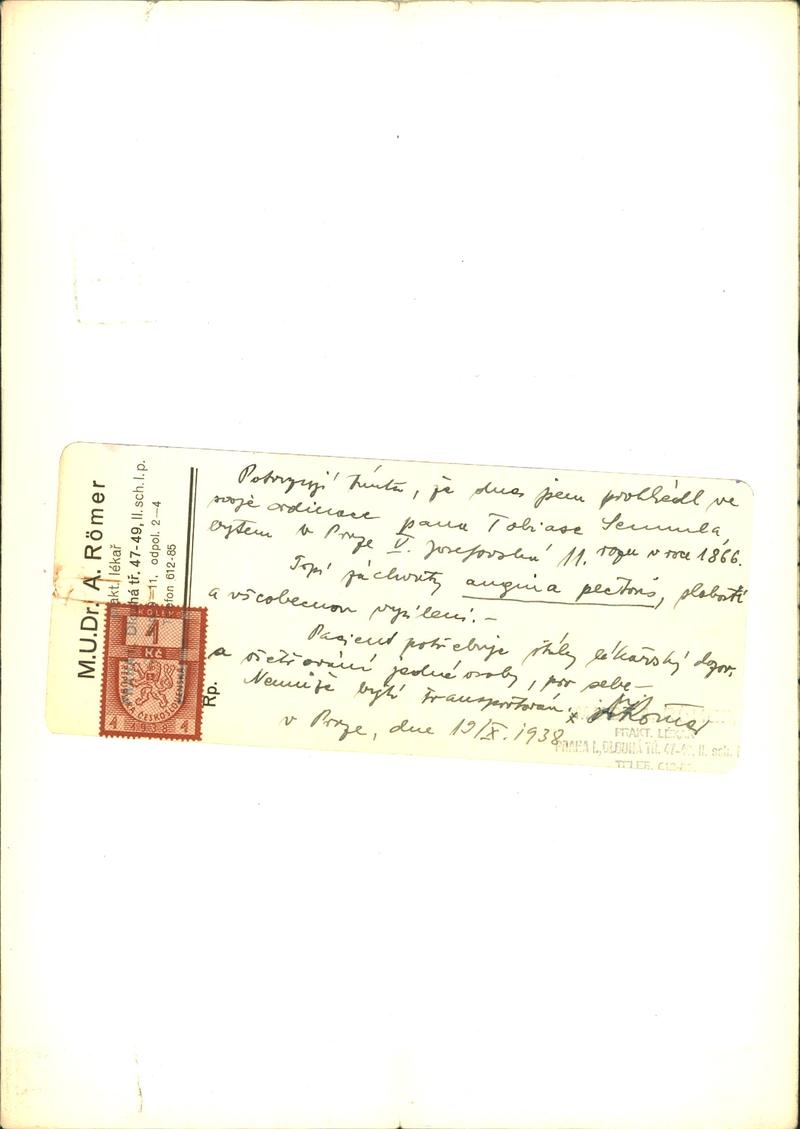 M.U.Dr. A. Römer
akt. lékař
Dlouhá tř. 47-49, II. sch. l. p.
9—11, odpol. 2—4
efon 612-85
Rp.
KOLEK
1
Kč
REPUBLIKA ČESKOSLOVENSKÁ
1 1938 1
Potvrzuji tímto, že dnes jsem prohlédl ve
svojé ordinace pana Tobiase
bytem v Praze V. Josefovská 11. roz. v roce 1866.
Trpí záchvaty angina pectoris, slabostí
a všeobecnou vysílení. —
Pacient potřebuje stálý lékařský dozor,
a ošetřování jedné osoby, pro sebe —
Nemůže býti transportován.
v Praze, dne 19/X. 1938
ARömer
PRAKT. LÉKAŘ
PRAHA I., DLOUHÁ TŘ. 47-49, II. sch.
TELEF. 612-85